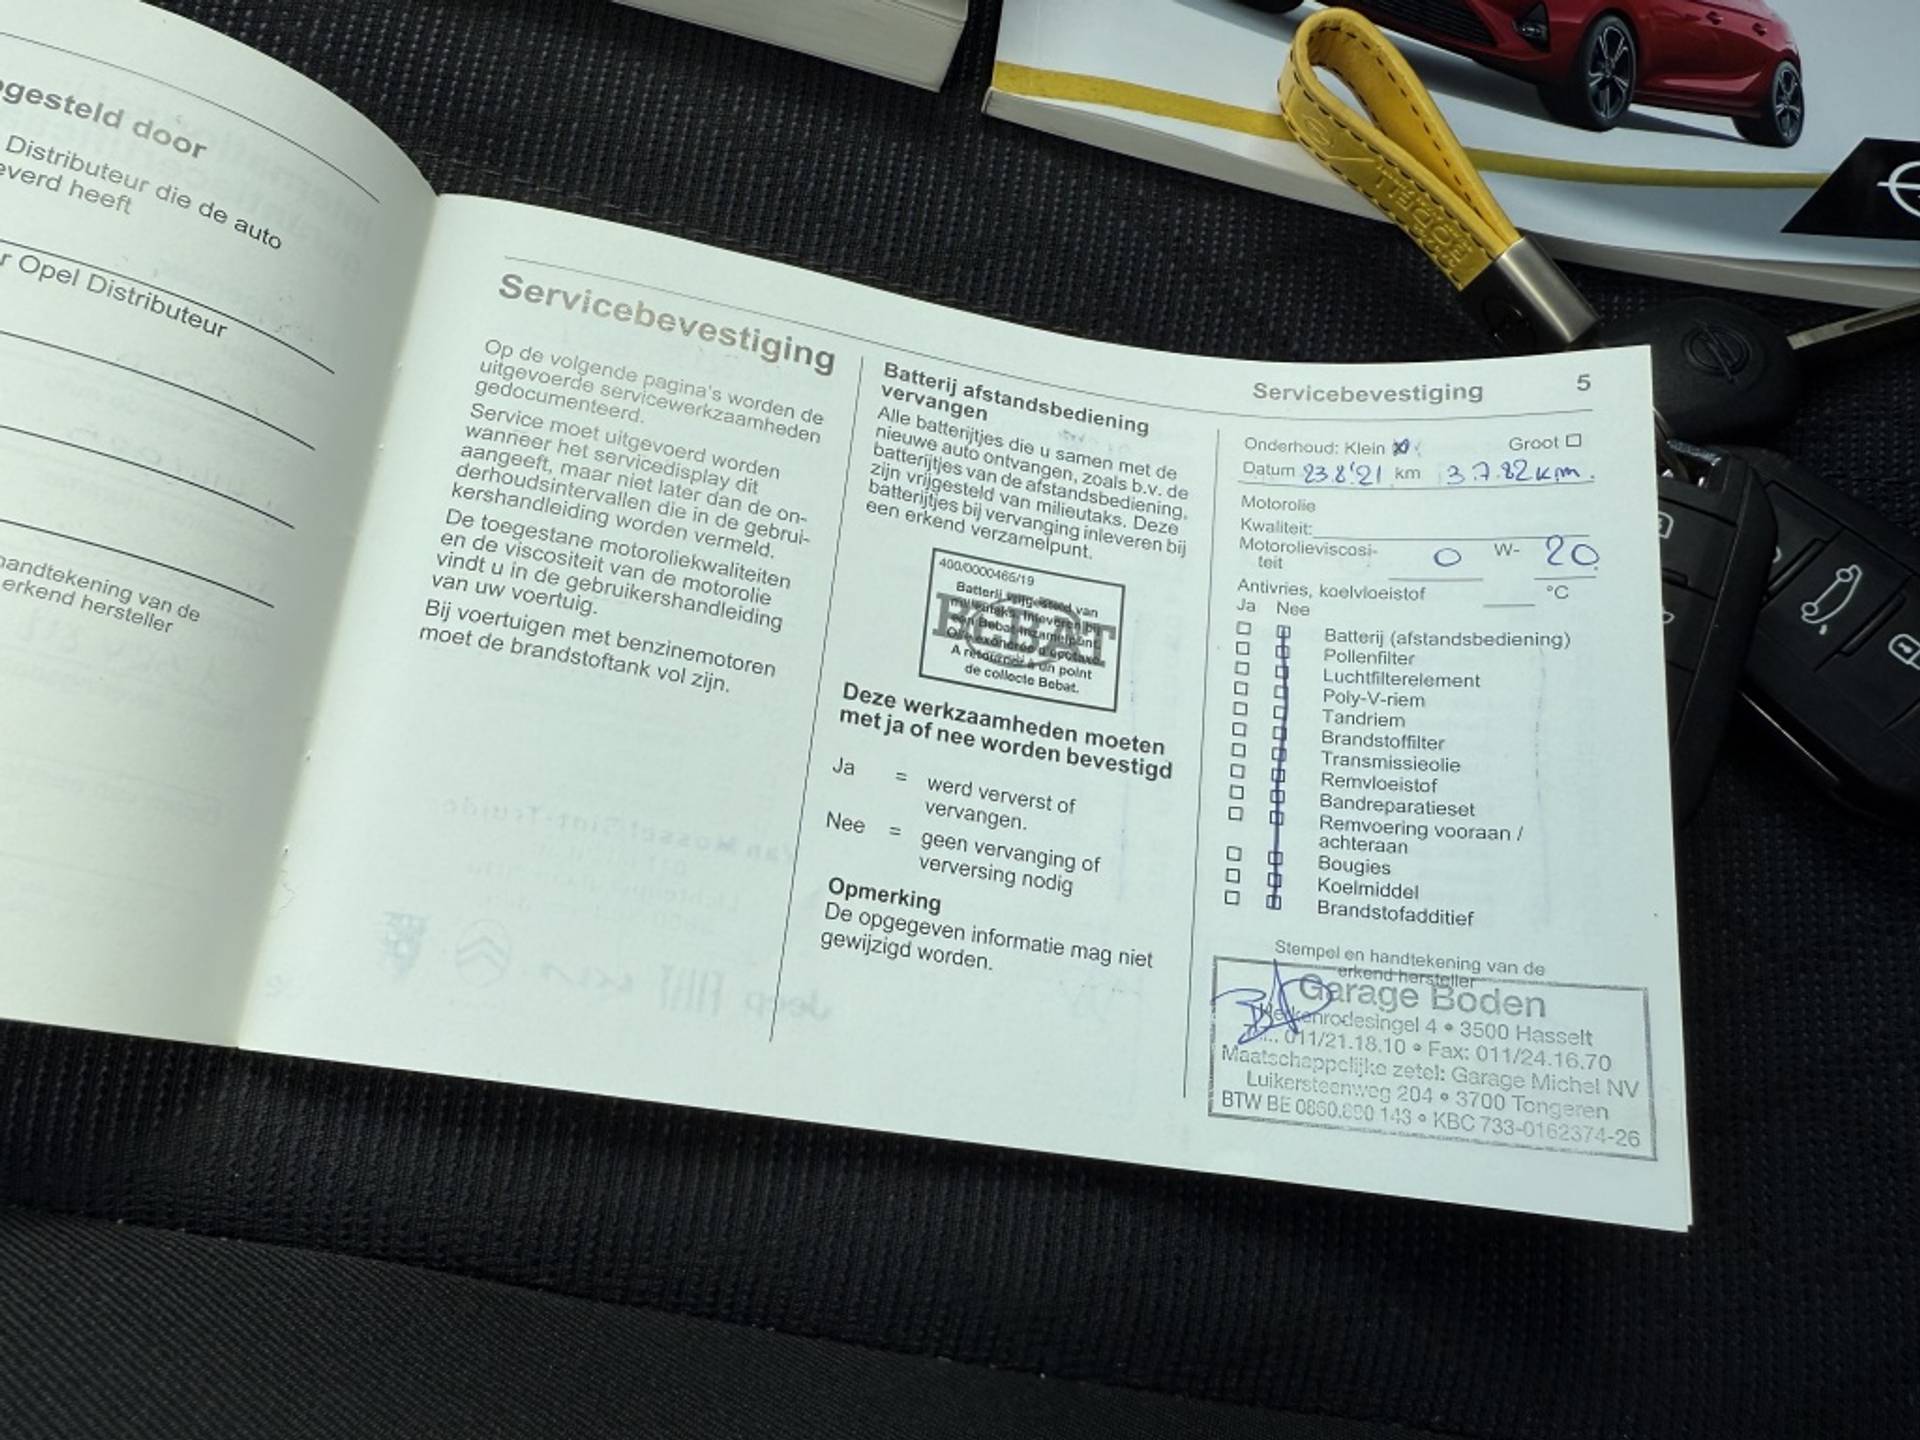 gesteld door
Distributeur die de auto
everd heeft
r Opel Distributeur
handtekening van de
erkend hersteller
Servicebevestiging
Op de volgende pagina's worden de
uitgevoerde servicewerkzaamheden
gedocumenteerd.
Service moet uitgevoerd worden
wanneer het servicedisplay dit
aangeeft, maar niet later dan de on-
derhoudsintervallen die in de gebrui-
kershandleiding worden vermeld.
De toegestane motoroliekwaliteiten
en de viscositeit van de motorolie
vindt u in de gebruikershandleiding
van uw voertuig.
Bij voertuigen met benzinemotoren
moet de brandstoftank vol zijn.
Batterij afstandsbediening
vervangen
Alle batterijtjes die u samen met de
nieuwe auto ontvangen, zoals b.v. de
batterijtjes van de afstandsbediening,
zijn vrijgesteld van milieutaks. Deze
batterijtjes bij vervanging inleveren bij
een erkend verzamelpunt.
400/0000465/19
Batterij vrijgesteld van
milieutaks. Inleveren bij
een Bebat-inzamelpunt.
Pile exonérée d'écotaxe.
A retourner à un point
de collecte Bebat.
BEBAT
Deze werkzaamheden moeten
met ja of nee worden bevestigd
Ja = werd ververst of
vervangen.
Nee = geen vervanging of
verversing nodig
Opmerking
De opgegeven informatie mag niet
gewijzigd worden.
Servicebevestiging 5
Onderhoud: Klein Groot
Datum 23.8.'21 km 3.782 km.
Motorolie
Kwaliteit:
Motorolieviscosi- 0 W- 20
teit
Antivries, koelvloeistof °C
Ja Nee
Batterij (afstandsbediening)
Pollenfilter
Luchtfilterelement
Poly-V-riem
Tandriem
Brandstoffilter
Transmissieolie
Remvloeistof
Bandreparatieset
Remvoering vooraan /
achteraan
Bougies
Koelmiddel
Brandstofadditief
Stempel en handtekening van de
erkend hersteller
Garage Boden
Herkenrodesingel 4 • 3500 Hasselt
011/21.18.10 • Fax: 011/24.16.70
Maatschappelijke zetel: Garage Michel NV
Luikersteenweg 204 • 3700 Tongeren
BTW BE 0860.890.143 • KBC 733-0162374-26